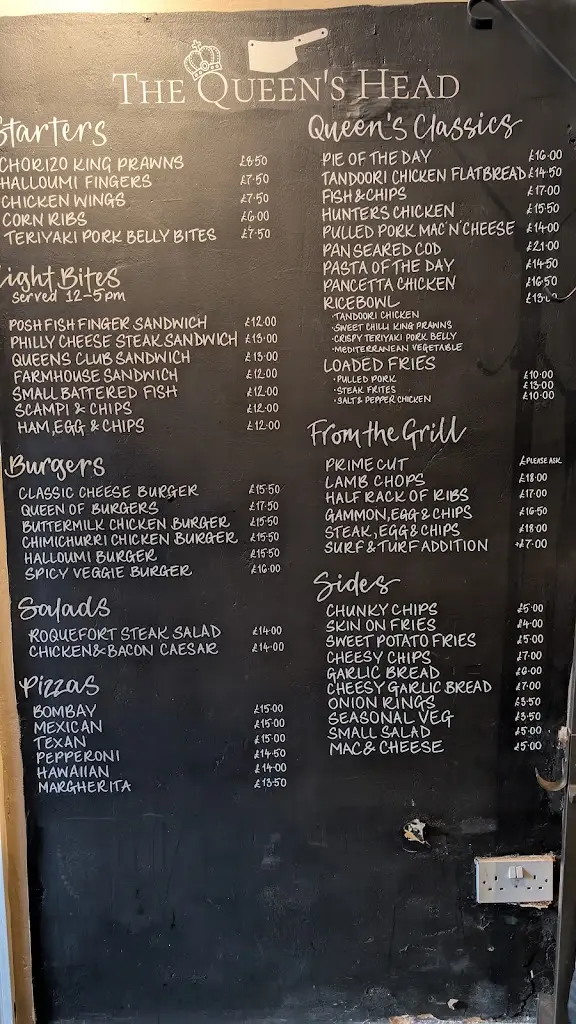 THE QUEEN'S HEAD
Starters
CHORIZO KING PRAWNS £8.50
HALLOUMI FINGERS £7.50
CHICKEN WINGS £7.50
CORN RIBS £6.00
TERIYAKI PORK BELLY BITES £7.50
Light Bites
Served 12-5pm
POSH FISH FINGER SANDWICH £12.00
PHILLY CHEESE STEAK SANDWICH £13.00
QUEENS CLUB SANDWICH £13.00
FARMHOUSE SANDWICH £12.00
SMALL BATTERED FISH £12.00
SCAMPI & CHIPS £12.00
HAM, EGG & CHIPS £12.00
Burgers
CLASSIC CHEESE BURGER £15.50
QUEEN OF BURGERS £17.50
BUTTERMILK CHICKEN BURGER £15.50
CHIMICHURRI CHICKEN BURGER £15.50
HALLOUMI BURGER £15.50
SPICY VEGGIE BURGER £16.00
Salads
ROQUEFORT STEAK SALAD £14.00
CHICKEN & BACON CAESAR £14.00
Pizzas
BOMBAY £15.00
MEXICAN £15.00
TEXAN £15.00
PEPPERONI £14.50
HAWAIIAN £14.00
MARGHERITA £13.50
Queen's Classics
PIE OF THE DAY £16.00
TANDOORI CHICKEN FLATBREAD £14.50
FISH & CHIPS £17.00
HUNTERS CHICKEN £15.50
PULLED PORK MAC'N'CHEESE £14.00
PAN SEARED COD £21.00
PASTA OF THE DAY £14.50
PANCETTA CHICKEN £16.50
RICEBOWL
• TANDOORI CHICKEN
• SWEET CHILLI KING PRAWNS
• CRISPY TERIYAKI PORK BELLY
• MEDITERRANEAN VEGETABLE
LOADED FRIES
• PULLED PORK £10.00
• STEAK FRITES £13.00
• SALT & PEPPER CHICKEN £10.00
From the Grill
PRIME CUT £PLEASE ASK
LAMB CHOPS £18.00
HALF RACK OF RIBS £17.00
GAMMON, EGG & CHIPS £16.50
STEAK, EGG & CHIPS £18.00
SURF & TURF ADDITION +£7.00
Sides
CHUNKY CHIPS £5.00
SKIN ON FRIES £4.00
SWEET POTATO FRIES £5.00
CHEESY CHIPS £7.00
GARLIC BREAD £6.00
CHEESY GARLIC BREAD £7.00
ONION RINGS £3.50
SEASONAL VEG £3.50
SMALL SALAD £5.00
MAC & CHEESE £5.00